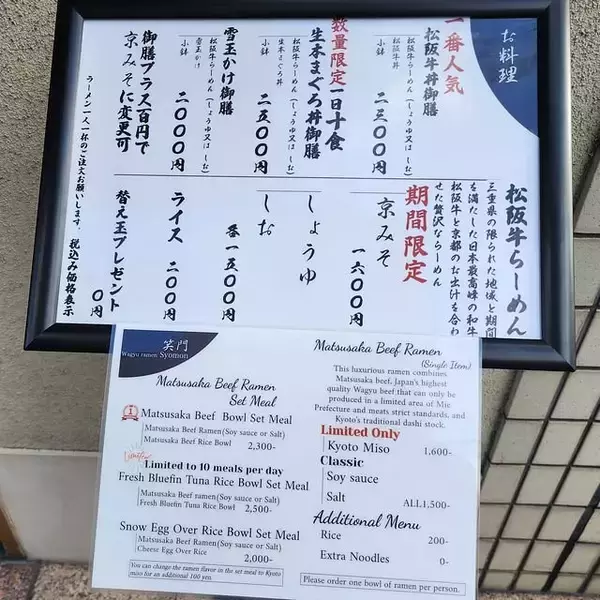 お料理
一番人気
松阪牛丼御膳
松阪牛らーめん(しょうゆ又は しお)
松阪牛丼
小鉢
二三〇〇円
数量限定一日十食
生本まぐろ丼御膳
松阪牛らーめん(しょうゆ又は しお)
生本まぐろ丼
小鉢
二五〇〇円
雪玉かけ御膳
松阪牛らーめん(しょうゆ又は しお)
雪玉かけ
小鉢
二〇〇〇円
御膳プラス百円で
京みそに変更可
松阪牛らーめん
三重県の限られた地域と期間
を満たした日本最高峰の和牛
松阪牛と京都のお出汁を合わ
せた贅沢ならーめん
期間限定
京みそ
一六〇〇円
しょうゆ
しお
各一五〇〇円
ライス
二〇〇円
替え玉プレゼント
〇円
ラーメン一人一杯のご注文お願いします。
税込み価格表示
笑門
Wagyu ramen Syomon
Matsusaka Beef Ramen
Set Meal
1
Matsusaka Beef Bowl Set Meal
Matsusaka Beef Ramen(Soy sauce or Salt)
Matsusaka Beef Rice Bowl
2,300-
Limited
Limited to 10 meals per day
Fresh Bluefin Tuna Rice Bowl Set Meal
Matsusaka Beef ramen(Soy sauce or Salt)
Fresh Bluefin Tuna Rice Bowl
2,500-
Snow Egg Over Rice Bowl Set Meal
Matsusaka Beef Ramen(Soy sauce or Salt)
Cheese Egg Over Rice
2,000-
You can change the ramen flavor in the set meal to Kyoto
miso for an additional 100 yen.
Matsusaka Beef Ramen
(Single Item)
This luxurious ramen combines
Matsusaka beef, Japan's highest
quality Wagyu beef that can only be
produced in a limited area of Mie
Prefecture and meats strict standards, and
Kyoto's traditional dashi stock.
Limited Only
Kyoto Miso
1,600-
Classic
Soy sauce
Salt
ALL1,500-
Additional Menu
Rice
200-
Extra Noodles
0-
Please order one bowl of ramen per person.